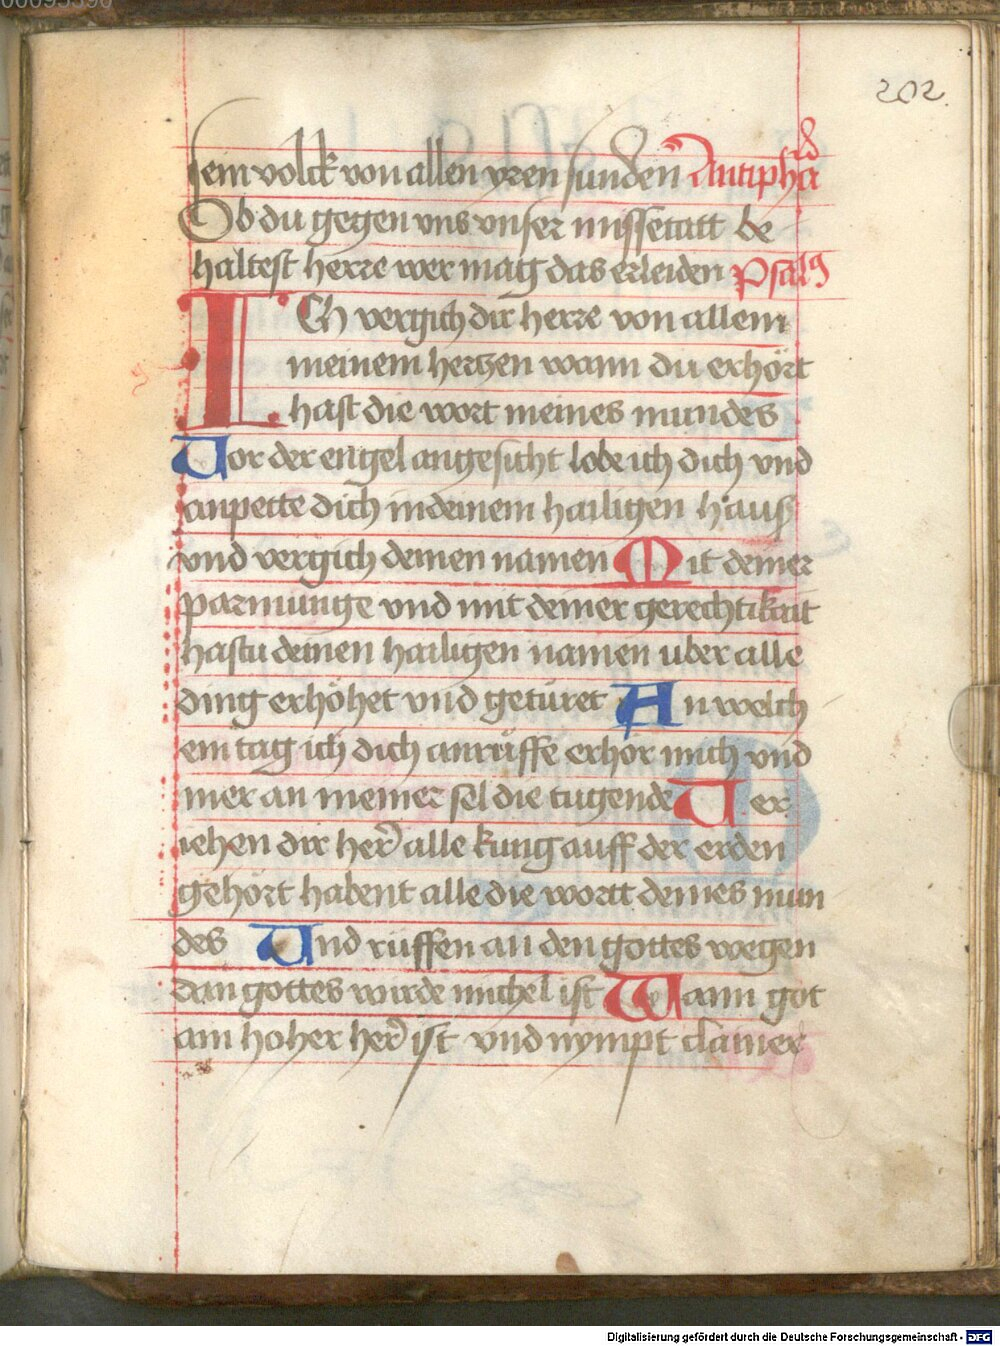 00095390
202
sein volck von allen yren sunden Antipha
Ob du gegen vns vnser missetatt be
haltest herre wer mag das erleiden Psalm9
ICh vergich dir herre von allem
meinem hertzen wann du erhört
hast die wort meines mundes
Vor der engel angesicht lobe ich dich vnd
anpette dich in deinem hailigen haus
vnd vergich deinen namen Mit deiner
parmunge vnd mit deiner gerechtikait
hastu deinen hailigen namen uber alle
ding erhöhet vnd getüret An welch
em tag ich dich anrüffe erhör mich vnd
mer an meiner sel die tugende Ver
iehen dir her̄ alle kung auff der erden
gehört habent alle die wortt deines mun
des Vnd rüffen an den gottes wegen
dan gottes wirde michel ist Wann got
ain hoher her̄ ist vnd nympt clainer
Digitalisierung gefördert durch die Deutsche Forschungsgemeinschaft - DFG